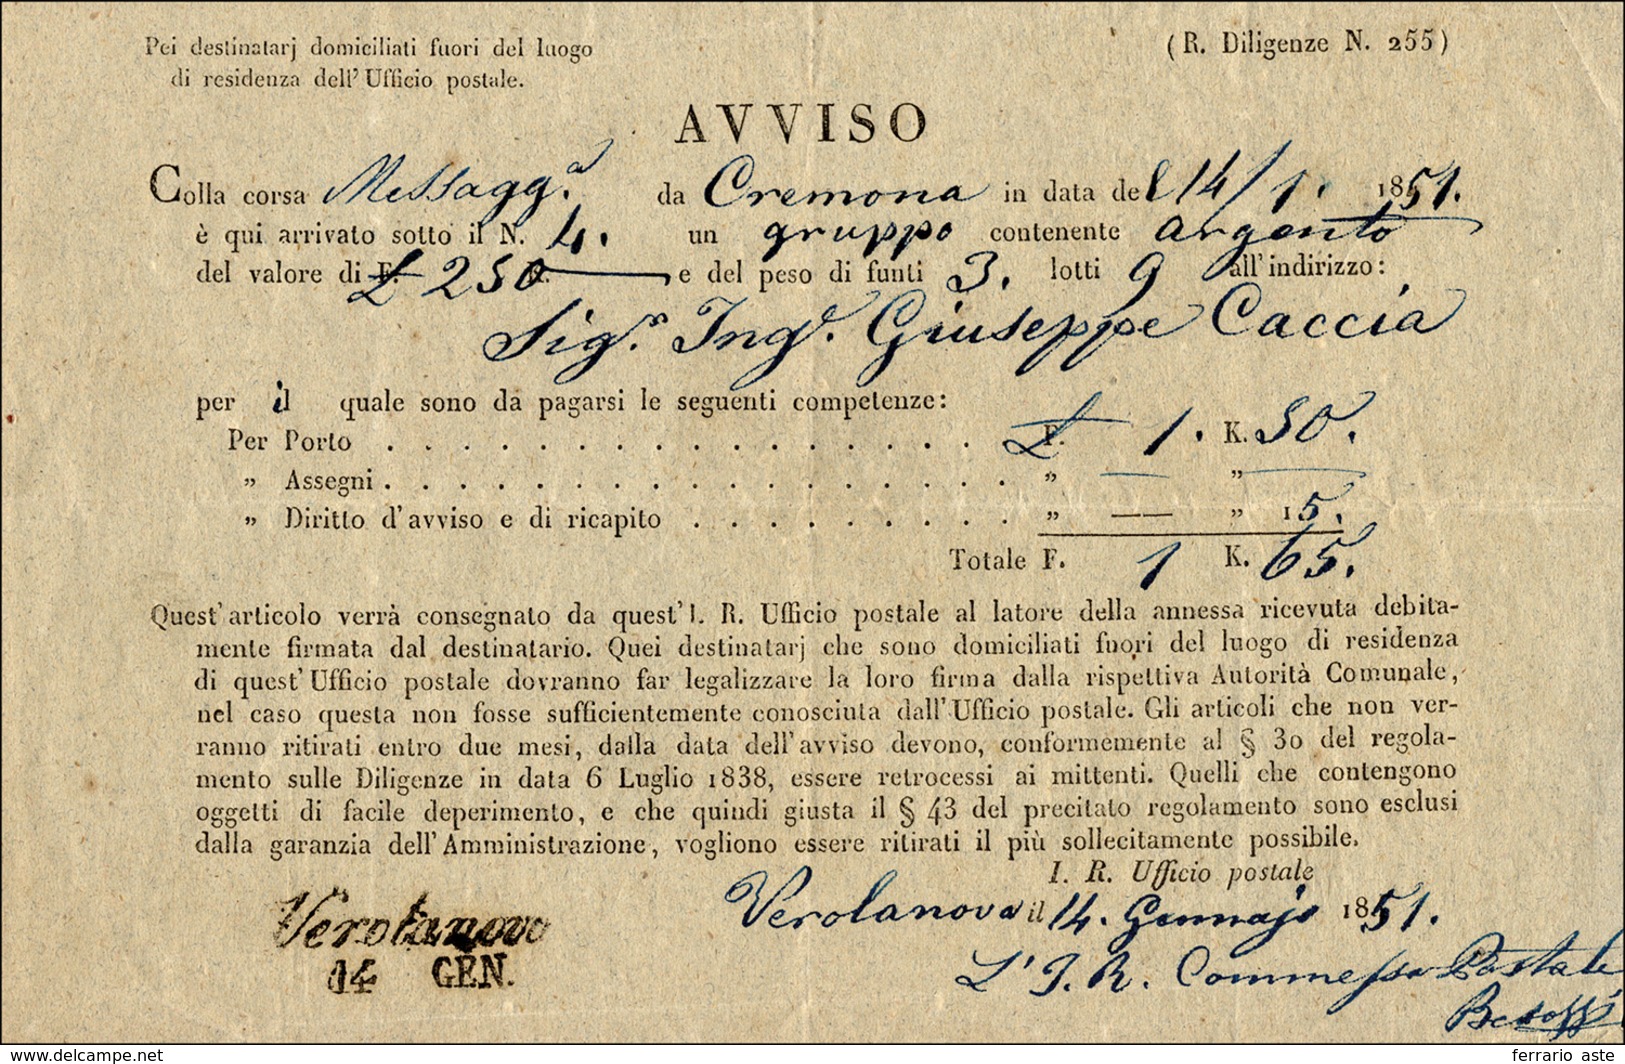 Pei destinatarj domiciliati fuori del luogo
di residenza dell' Ufficio postale.
(R. Diligenze N. 255)
AVVISO
Colla corsa Messagg.a da Cremona in data del 14/1. 1851.
è qui arrivato sotto il N. 4. un gruppo contenente argento
del valore di £ 250 e del peso di funti 3. lotti 9 all'indirizzo:
Sig.r Ing.e Giuseppe Caccia
per il quale sono da pagarsi le seguenti competenze:
Per Porto . . . . . . . . . . . . . . . . £ 1. K. 50.
„ Assegni . . . . . . . . . . . . . . . . „ — „ —
„ Diritto d'avviso e di ricapito . . . . . . . . . „ — — „ 15.
Totale F. 1 K. 65.
Quest'articolo verrà consegnato da quest'I. R. Ufficio postale al latore della annessa ricevuta debita-
mente firmata dal destinatario. Quei destinatarj che sono domiciliati fuori del luogo di residenza
di quest'Ufficio postale dovranno far legalizzare la loro firma dalla rispettiva Autorità Comunale,
nel caso questa non fosse sufficientemente conosciuta dall'Ufficio postale. Gli articoli che non ver-
ranno ritirati entro due mesi, dalla data dell'avviso devono, conformemente al § 30 del regola-
mento sulle Diligenze in data 6 Luglio 1838, essere retrocessi ai mittenti. Quelli che contengono
oggetti di facile deperimento, e che quindi giusta il § 43 del precitato regolamento sono esclusi
dalla garanzia dell'Amministrazione, vogliono essere ritirati il più sollecitamente possibile.
I. R. Ufficio postale
Verolanova il 14. Gennajo 1851.
Verolanovo
14 GEN.
L'I. R. Commesso Postale
ferrario aste